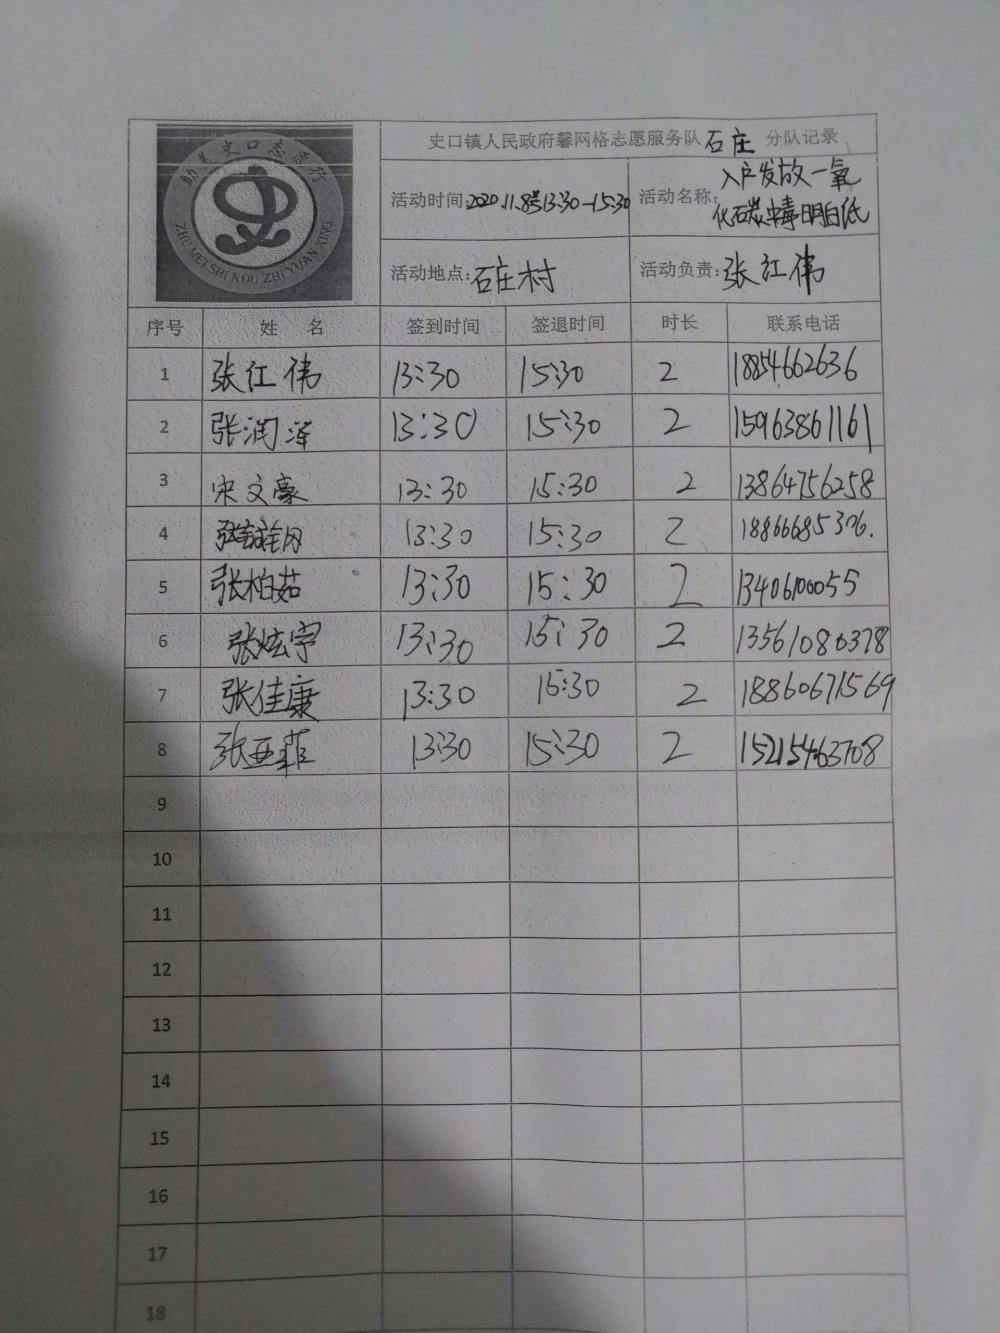 助美史口志愿行
ZHU MEI SHI KOU ZHI YUAN XING
史口镇人民政府馨网格志愿服务队 石庄 分队记录
活动时间:2020.11.8 13:30-15:30
活动名称: 入户发放一氧
化石炭中毒明白纸
活动地点: 石庄村
活动负责: 张江伟
序号 姓名 签到时间 签退时间 时长 联系电话
1 张江伟 13:30 15:30 2 18854662636
2 张润泽 13:30 15:30 2 15963861161
3 宋文豪 13:30 15:30 2 13864756258
4 13:30 15:30 2 18866685306.
5 张柏茹 13:30 15:30 2 13406100055
6 张炫宇 13:30 15:30 2 13561080378
7 张佳康 13:30 15:30 2 18860671569
8 张亚菲 13:30 15:30 2 15215463708
9
10
11
12
13
14
15
16
17
18